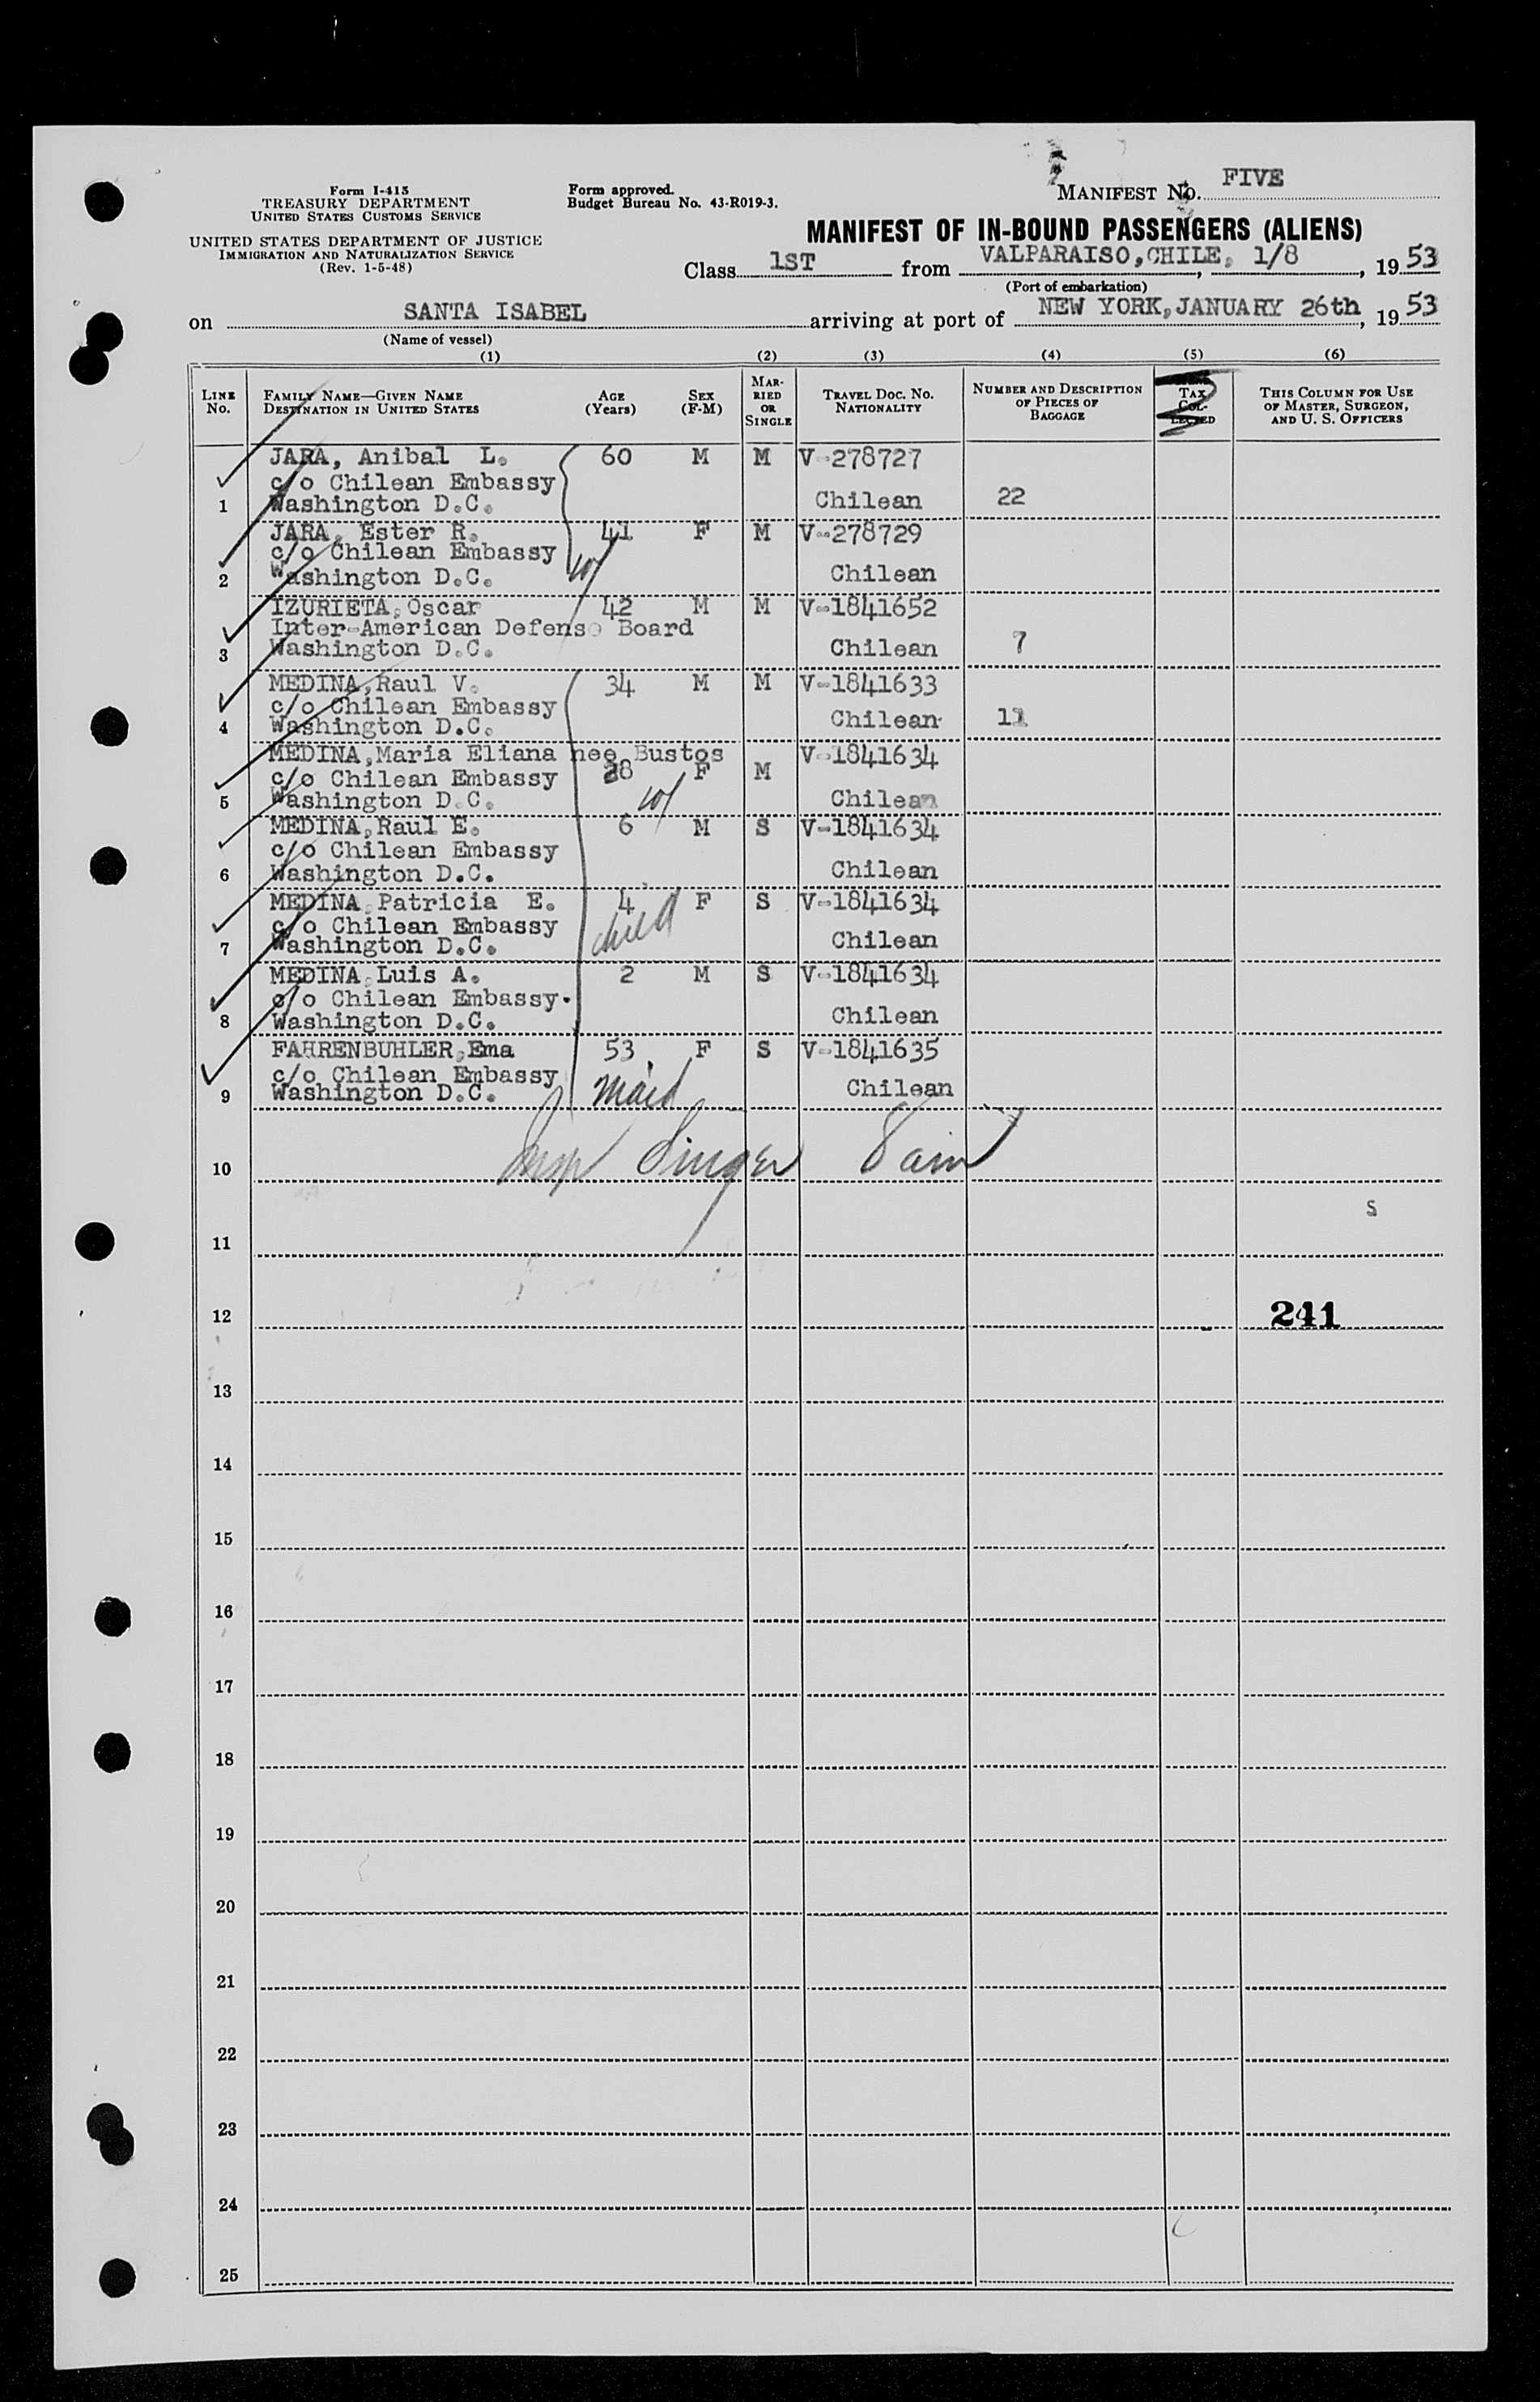 Form I-415
TREASURY DEPARTMENT
UNITED STATES CUSTOMS SERVICE
UNITED STATES DEPARTMENT OF JUSTICE
IMMIGRATION AND NATURALIZATION SERVICE
(Rev. 1-5-48)
Form approved.
Budget Bureau No. 43-R019-3.
MANIFEST NO. FIVE
MANIFEST OF IN-BOUND PASSENGERS (ALIENS)
Class 1ST from VALPARAISO, CHILE, 1/8, 1953
(Port of embarkation)
on SANTA ISABEL arriving at port of NEW YORK, JANUARY 26th, 1953
(Name of vessel)
(1) (2) (3) (4) (5) (6)
LINE NO. FAMILY NAME—GIVEN NAME DESTINATION IN UNITED STATES AGE (Years) SEX (F-M) MARRIED OR SINGLE TRAVEL DOC. NO. NATIONALITY NUMBER AND DESCRIPTION OF PIECES OF BAGGAGE TAX COLLECTED THIS COLUMN FOR USE OF MASTER, SURGEON, AND U. S. OFFICERS
JARA, Anibal L. 60 M M V-278727
c/o Chilean Embassy
1 Washington D.C. Chilean 22
JARA, Ester R. 41 F M V-278729
c/o Chilean Embassy
2 Washington D.C. Chilean
IZURIETA, Oscar 42 M M V-1841652
Inter-American Defense Board
3 Washington D.C. Chilean 7
MEDINA, Raul V. 34 M M V-1841633
c/o Chilean Embassy
4 Washington D.C. Chilean 11
MEDINA, Maria Eliana nee Bustos V-1841634
c/o Chilean Embassy 28 F M
5 Washington D.C. Chilean
MEDINA, Raul E. 6 M S V-1841634
c/o Chilean Embassy
6 Washington D.C. Chilean
MEDINA, Patricia E. 4 F S V-1841634
c/o Chilean Embassy child
7 Washington D.C. Chilean
MEDINA, Luis A. 2 M S V-1841634
c/o Chilean Embassy.
8 Washington D.C. Chilean
FAHRENBUHLER, Ema 53 F S V-1841635
c/o Chilean Embassy
9 Washington D.C. maid Chilean
10 Insp Singer 8 am
S
11
12 241
13
14
15
16
17
18
19
20
21
22
23
24
25